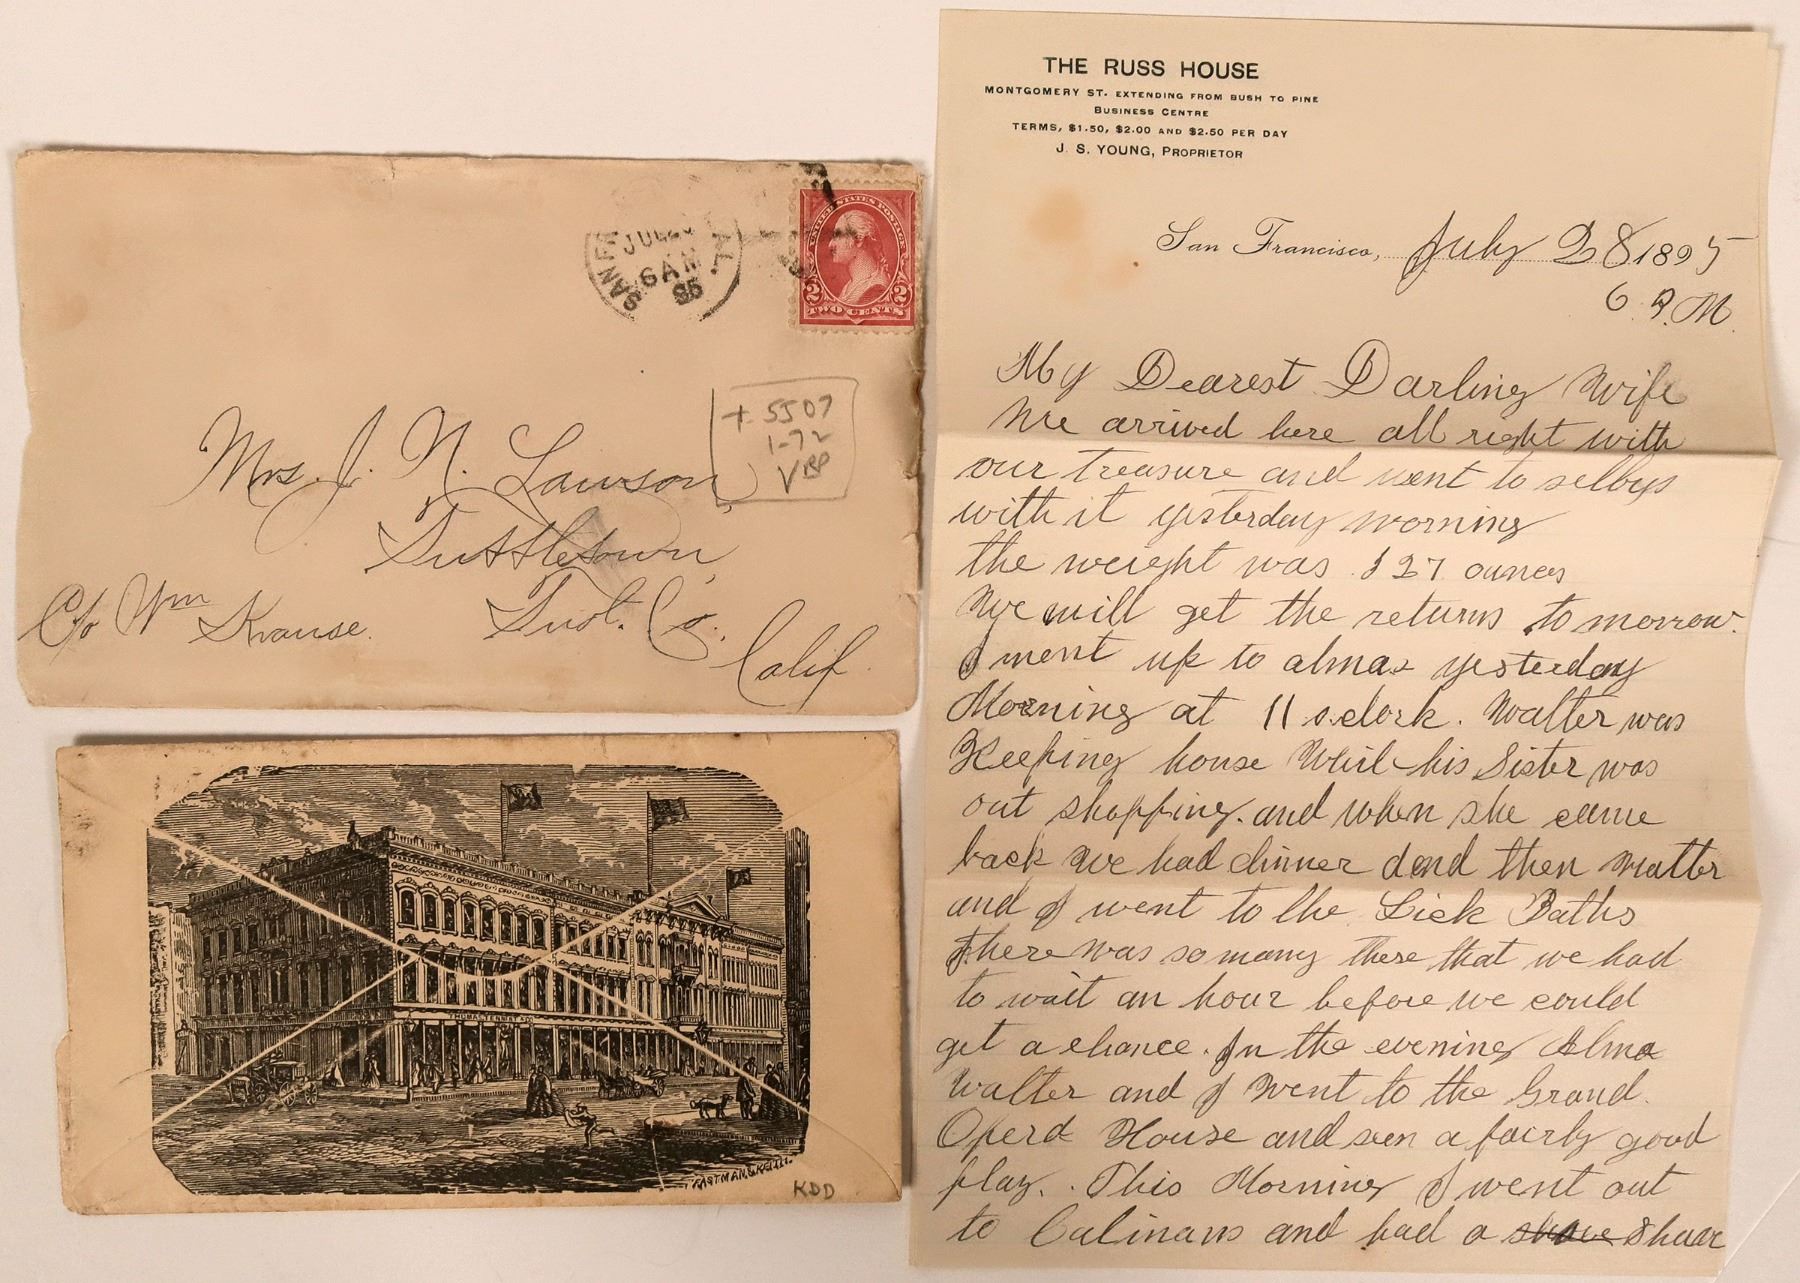 SAN FR
JUL
6 AM
95
AL.
UNITED STATES POSTAGE
2 2
TWO CENTS
+ 5507
1-72
Mrs. J. N. Lawson,
Tuttletown,
C/o Wm Krause.
Tuol. Co.,
Calif.
EASTMAN & KEITH.
KDD
THE RUSS HOUSE
MONTGOMERY ST. EXTENDING FROM BUSH TO PINE
BUSINESS CENTRE
TERMS, $1.50, $2.00 AND $2.50 PER DAY
J. S. YOUNG, PROPRIETOR
San Francisco, July 28 1895
6 P.M.
My Dearest Darling Wife
We arrived here all right with
our treasure and went to selbys
with it yesterday morning
the weight was 27 ounces
We will get the returns to morrow.
I went up to almas yesterday
Morning at 11 o.clock. Walter was
Keeping house Whil his Sister was
out shopping. and when she came
back We had dinner and then Walter
and I went to the Lick Baths
there was so many there that we had
to wait an hour before we could
get a chance. In the evening Alma
Walter and I Went to the Grand.
Opera House and seen a fairly good
play. This Morning I went out
to Calinans and had a shave Shave